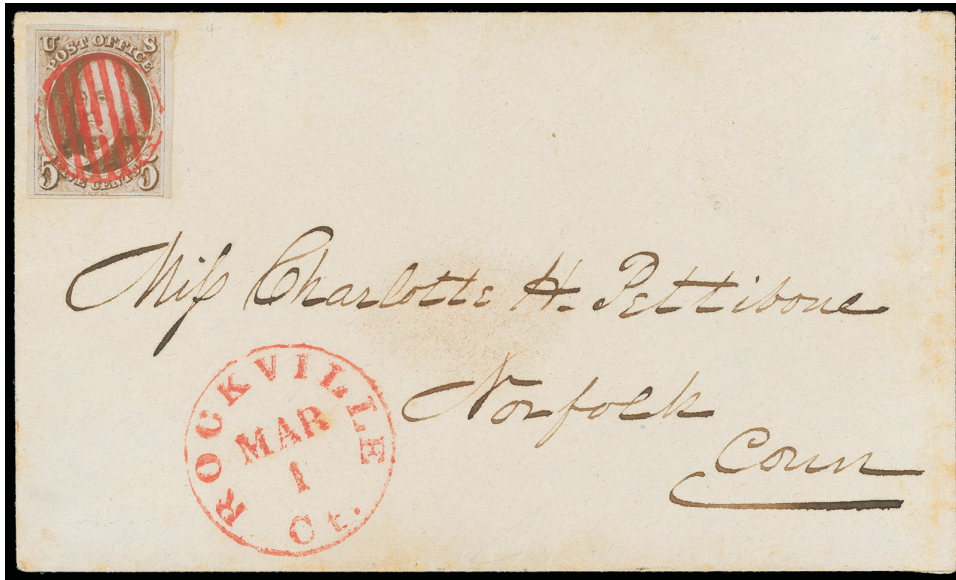 U S
POST OFFICE
5 FIVE CENTS 5
Miſs Charlotte H. Pettibone
Norfolk
Conn
ROCKVILLE
MAR
1
Ct.